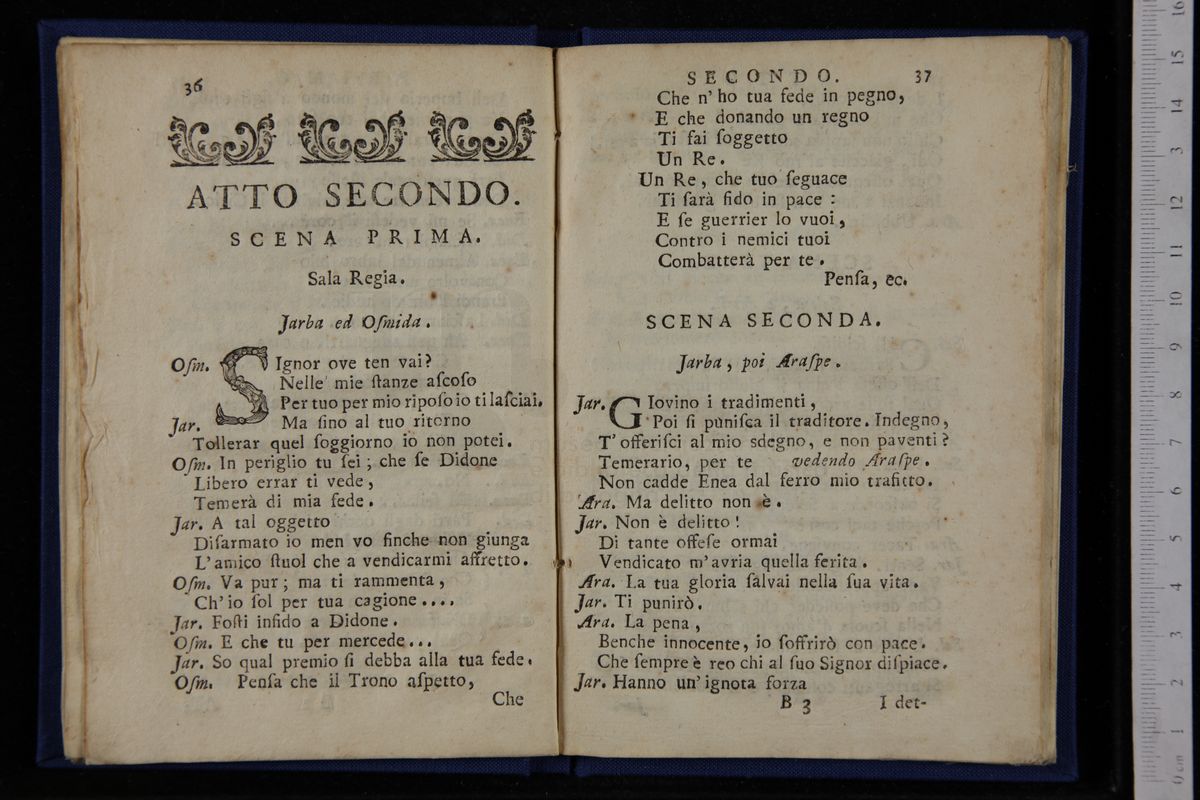 36
ATTO SECONDO.
SCENA PRIMA.
Sala Regia.
Jarba ed Oſmida.
Oſm. SIgnor ove ten vai?
Nelle mie ſtanze aſcoſo
Per tuo per mio ripoſo io ti laſciai.
Jar. Ma ſino al tuo ritorno
Tollerar quel ſoggiorno io non potei.
Oſm. In periglio tu ſei; che ſe Didone
Libero errar ti vede,
Temerà di mia fede.
Jar. A tal oggetto
Diſarmato io men vo finche non giunga
L'amico ſtuol che a vendicarmi affretto.
Oſm. Va pur; ma ti rammenta,
Ch'io ſol per tua cagione....
Jar. Foſti infido a Didone.
Oſm. E che tu per mercede...
Jar. So qual premio ſi debba alla tua fede.
Oſm. Penſa che il Trono aſpetto,
Che
SECONDO. 37
Che n'ho tua fede in pegno,
E che donando un regno
Ti fai ſoggetto
Un Re.
Un Re, che tuo ſeguace
Ti ſarà fido in pace:
E ſe guerrier lo vuoi,
Contro i nemici tuoi
Combatterà per te.
Penſa, ec.
SCENA SECONDA.
Jarba, poi Araſpe.
Jar. GIovino i tradimenti,
Poi ſi puniſca il traditore. Indegno,
T'offeriſci al mio sdegno, e non paventi?
Temerario, per te vedendo Araſpe.
Non cadde Enea dal ferro mio trafitto.
Ara. Ma delitto non è.
Jar. Non è delitto!
Di tante offeſe ormai
Vendicato m'avria quella ferita.
Ara. La tua gloria ſalvai nella ſua vita.
Jar. Ti punirò.
Ara. La pena,
Benche innocente, io ſoffrirò con pace.
Che ſempre è reo chi al ſuo Signor diſpiace.
Jar. Hanno un'ignota forza
B 3 I det-
0 cm 1 2 3 4 5 6 7 8 9 10 11 12 13 14 15 16